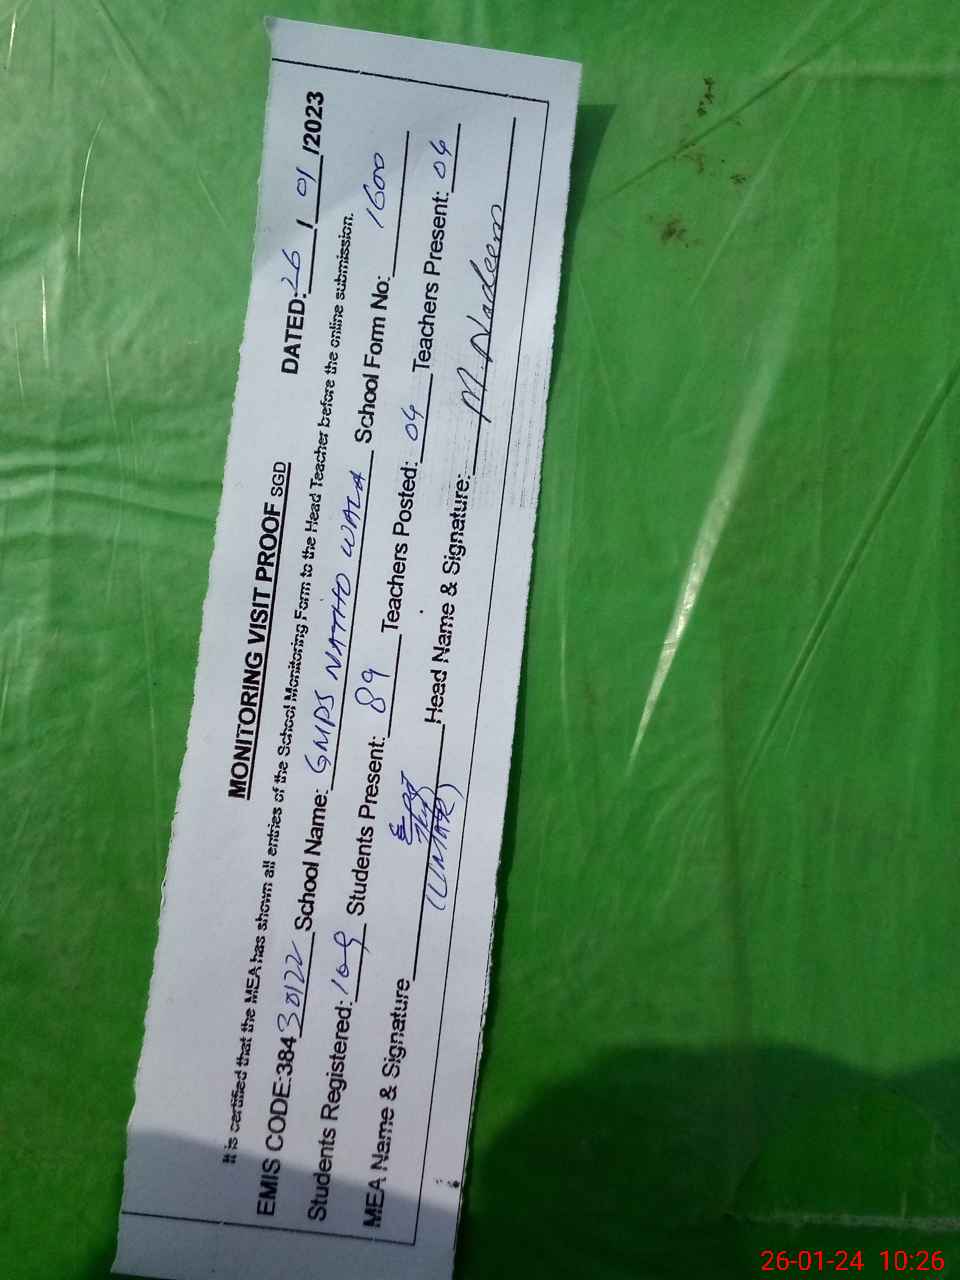 MONITORING VISIT PROOF SGD DATED: 26 / 01 /2023
It is certified that the MEA has shown all entries of the School Monitoring Form to the Head Teacher before the online submission.
EMIS CODE:38430122 School Name: GMPS NATHO WALA School Form No: 1600
Students Registered: 109 Students Present: 89 Teachers Posted: 04 Teachers Present: 04
MEA Name & Signature (UMAR) Head Name & Signature: M. Nadeem
26-01-24 10:26